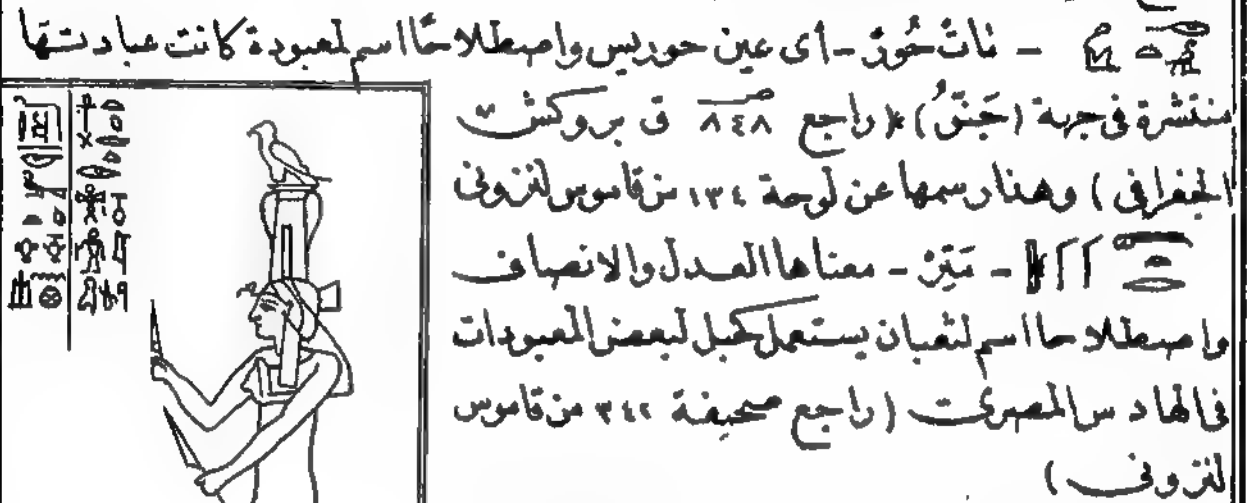 – نات حُورْ – أى عين حوريس واصطلاحًا اسم لمعبودة كانت عبادتها
منتشرة فى جهة (جَبَتّىُ) (راجع ٨٤٨ ق بروكش
الجغرافى) وهنا رسمها عن لوحة ١٣٤ من قاموس لنزونى
– مَتِرْ – معناها العدل والانصاف
واصطلاحا اسم لثعبان يستعمل كحبل لبعض المعبودات
فى الهادس المصرى (راجع صحيفة ٣٤٢ من قاموس
لنزونى)